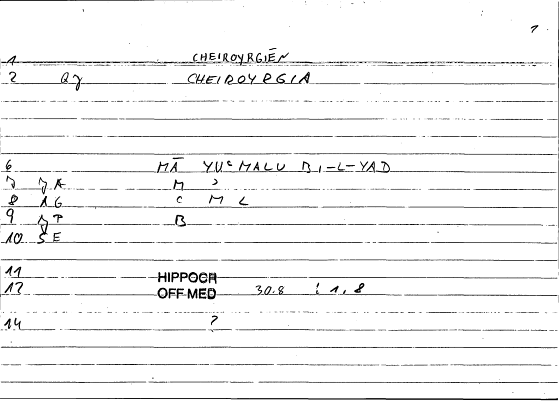 1 CHEIROYRGIĒN
2 CHEIROYRGIA
6 MĀ YUᶜMALU BI-L-YAD
7 M ʾ
8 AG ᶜ M L
9 B
10 SE
11
HIPPOCR
12 OFF MED 30.8 : 1, 8
14 ?